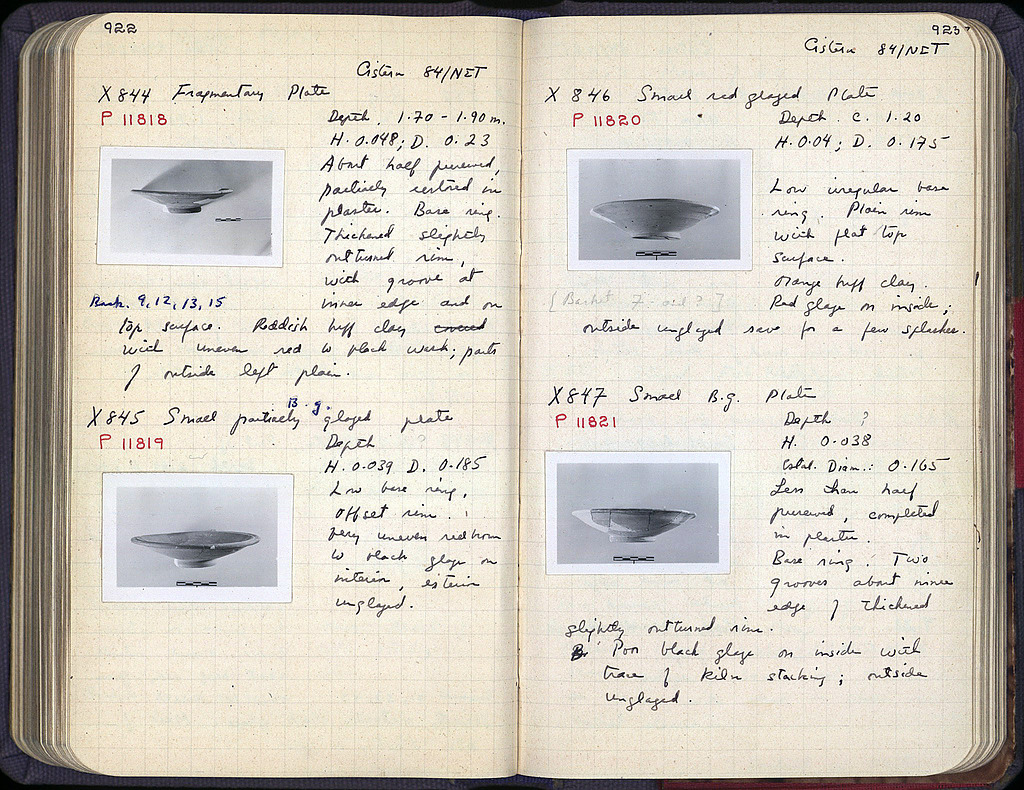 922
Cistern 84/NET
X 844 Fragmentary Plate
P 11818
Depth. 1.70 - 1.90 m.
H. 0.048; D. 0.23
About half preserved,
partially restored in
plaster. Base ring.
Thickened slightly
outturned rim,
with groove at
Bask. 9, 12, 13, 15
inner edge and on
top surface. Reddish buff clay covered
with uneven red to black wash; parts
of outside left plain.
X 845 Small partially B.g. glazed plate
P 11819
Depth ?
H. 0.039 D. 0.185
Low base ring,
offset rim.
Very uneven red brown
to black glaze on
interior, exterior
unglazed.
923
Cistern 84/NET
X 846 Small red glazed Plate
P 11820
Depth. c. 1.20
H. 0.04; D. 0.175
Low irregular base
ring. Plain rim
with flat top
surface.
Orange buff clay.
[Basket 7 - ?]
Red glaze on inside;
outside unglazed save for a few splashes.
X 847 Small B.g. Plate
P 11821
Depth ?
H. 0.038
Estd. Diam.: 0.165
Less than half
preserved, completed
in plaster.
Base ring. Two
grooves about inner
edge of thickened
slightly outturned rim.
Poor black glaze on inside with
trace of kiln stacking; outside
unglazed.